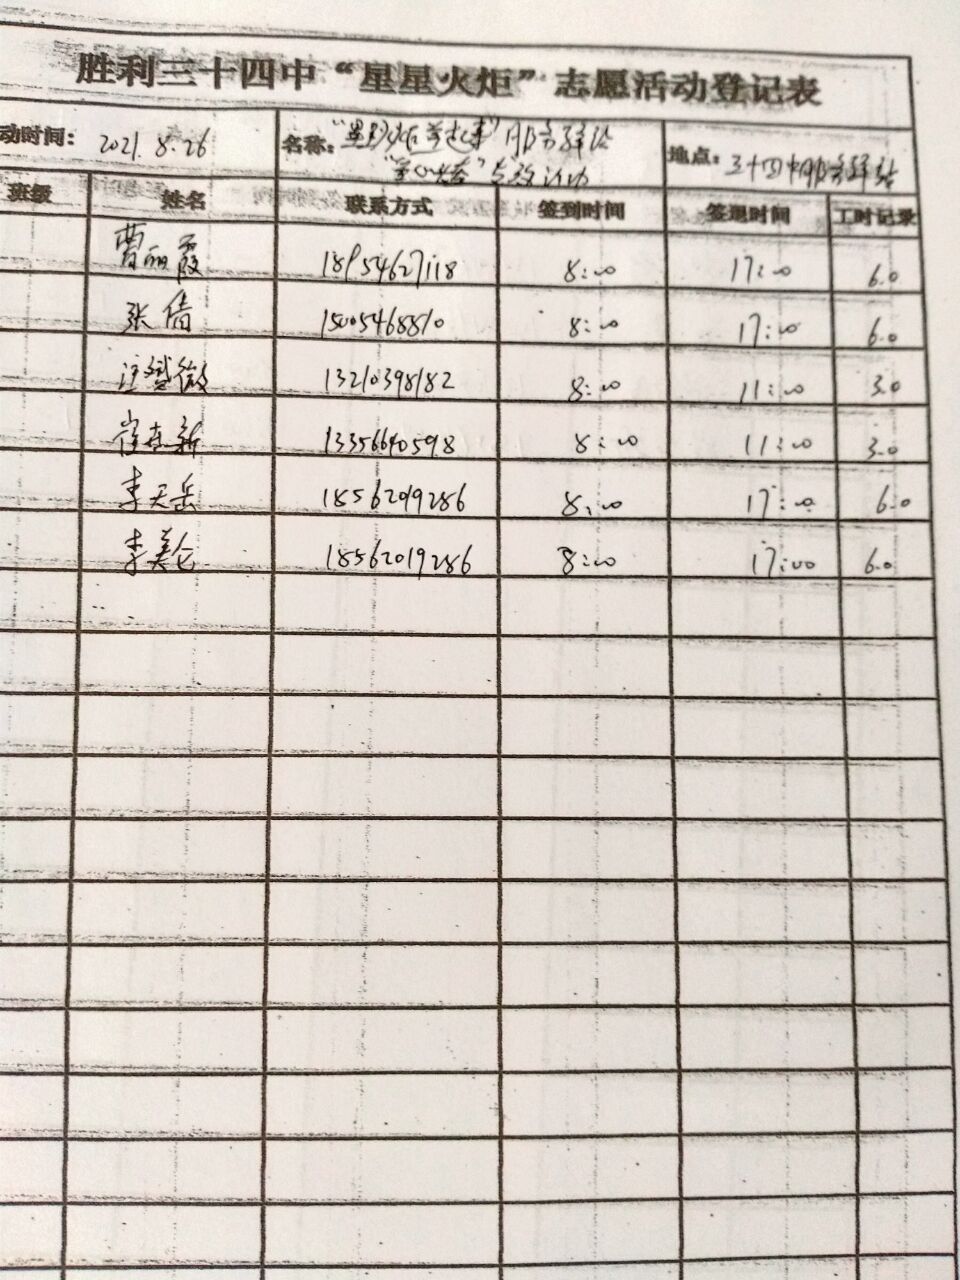 胜利三十四中“星星火炬”志愿活动登记表
动时间： 2021.8.26 名称： 服务驿站 地点：三十四中服务驿站
班级 姓名 联系方式 签到时间 签退时间 工时记录
曹丽霞 18954627118 8:00 17:00 6.0
张倩 15005468810 8:00 17:00 6.0
汪 微 13210398182 8:00 11:00 3.0
崔 新 13356640598 8:00 11:00 3.0
李天岳 18562019286 8:00 17:00 6.0
李美仑 18562019286 8:00 17:00 6.0